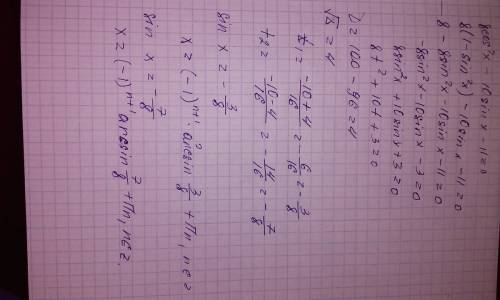 8cos²x - 10sin x - 11 = 0
8(1 - sin²x) - 10sin x - 11 = 0
8 - 8sin²x - 10sin x - 11 = 0
-8sin²x - 10sin x - 3 = 0
8sin²x + 10sin x + 3 = 0
8t² + 10t + 3 = 0
D = 100 - 96 = 4
√D = 4
t₁ = (-10 + 4)/16 = -6/16 = -3/8
t₂ = (-10 - 4)/16 = -14/16 = -7/8
sin x = -3/8
x = (-1)ⁿ⁺¹ · arcsin 3/8 + πn, n ∈ z
sin x = -7/8
x = (-1)ⁿ⁺¹ · arcsin 7/8 + πn, n ∈ z.